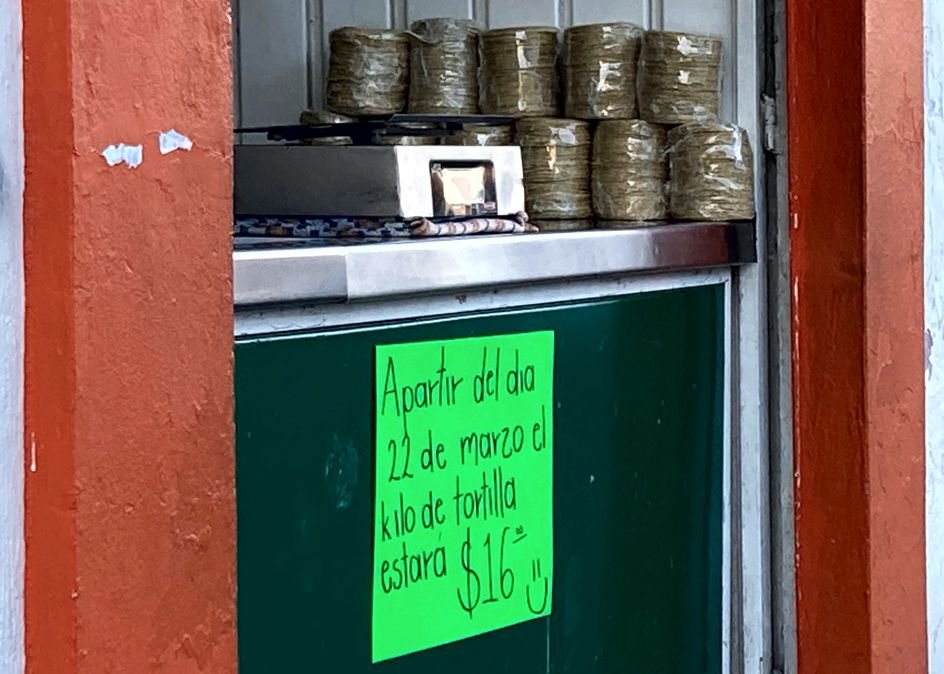 Apartir del dia
22 de marzo el
kilo de tortilla
estará $16⁰⁰ :)